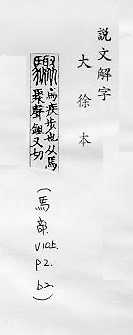 說文解字
大徐本
驟
馬疾步也从馬
聚聲鉏又切
(馬部.
V10b.
P2.
b2.)